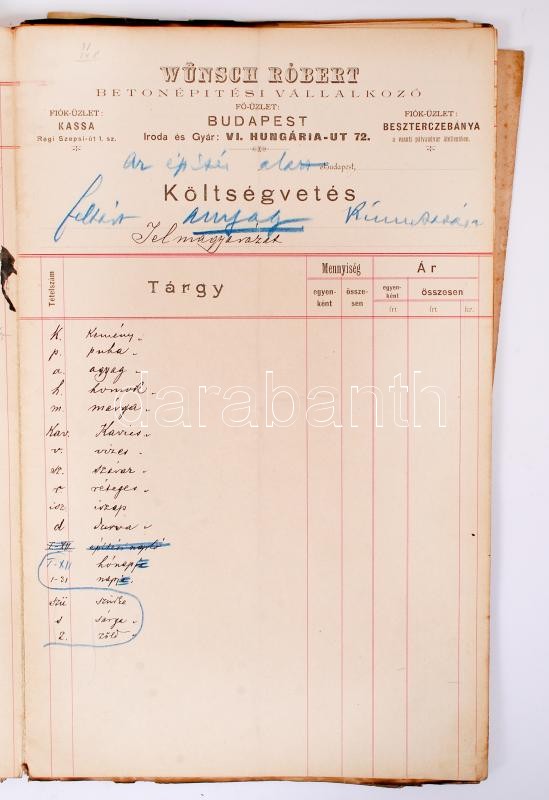 31
WÜNSCH RÓBERT
BETONÉPITÉSI VÁLLALKOZÓ
FIÓK-ÜZLET:
KASSA
Régi Szepsi-út 1. sz.
FŐ-ÜZLET:
BUDAPEST
Iroda és Gyár: VI. HUNGÁRIA-UT 72.
FIÓK-ÜZLET:
BESZTERCZEBÁNYA
a vasuti pályaudvar átellenében.
Budapest,
Az építés alatt
Költségvetés
feltárt anyag kimutatása
Jelmagyarázat
Tételszám
Tárgy
Mennyiség
Ár
egyen-ként
össze-sen
egyen-ként
összesen
frt
frt
kr.
k. Kemény „
p. puha „
a. agyag „
h. homok „
m. márga „
Kav. Kavics „
v. vizes „
sz. száraz „
r réteges „
isz iszap
d durva „
I-XII építési napló
I-XII hónap
1-31 nap
szü szürke
s sárga „
z. zöld „
darabanth